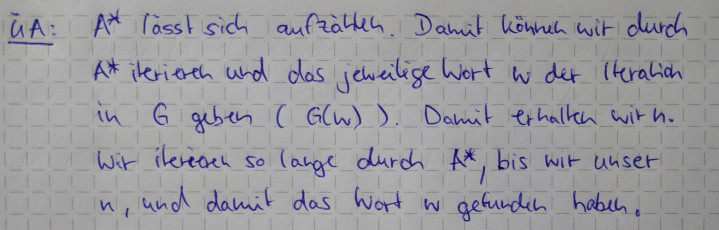 ÜA: A* lässt sich aufzählen. Damit können wir durch
A* iterieren und das jeweilige Wort w der Iteration
in G geben ( G(w) ). Damit erhalten wir n.
Wir iterieren so lange durch A*, bis wir unser
n, und damit das Wort w gefunden haben.